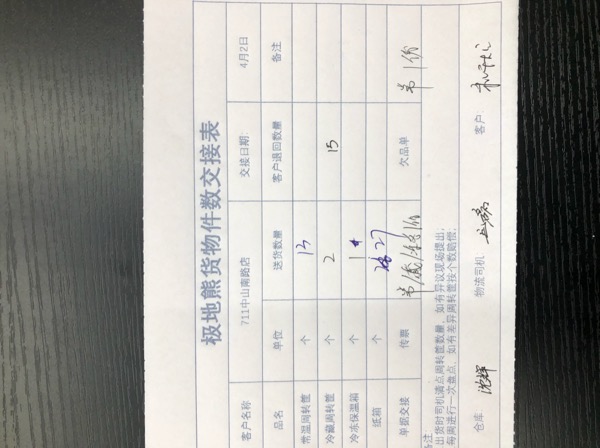 极地熊货物件数交接表
客户名称 711中山南路店 交接日期: 4月2日
品名 单位 送货数量 客户退回数量 备注
常温周转筐 个 13
冷藏周转筐 个 2 15
冷冻保温箱 个 1
纸箱 个 27
单据交接 传票 欠品单 共1份
备注:
出货时司机清点周转筐数量，如有异议现场提出，
每周进行一次盘点，如有差异周转筐按个数赔偿。
仓库: 沈辉 物流司机: 客户: